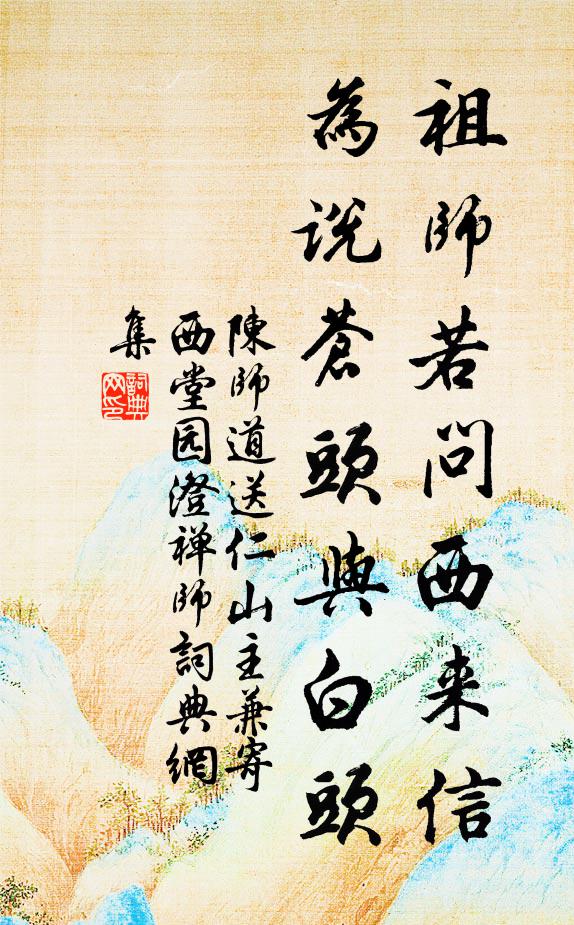 祖師若問西来信
為説蒼頭與白頭
陳師道送仁山主兼寄
西堂园澄禅師詞典網
集
詞典網印